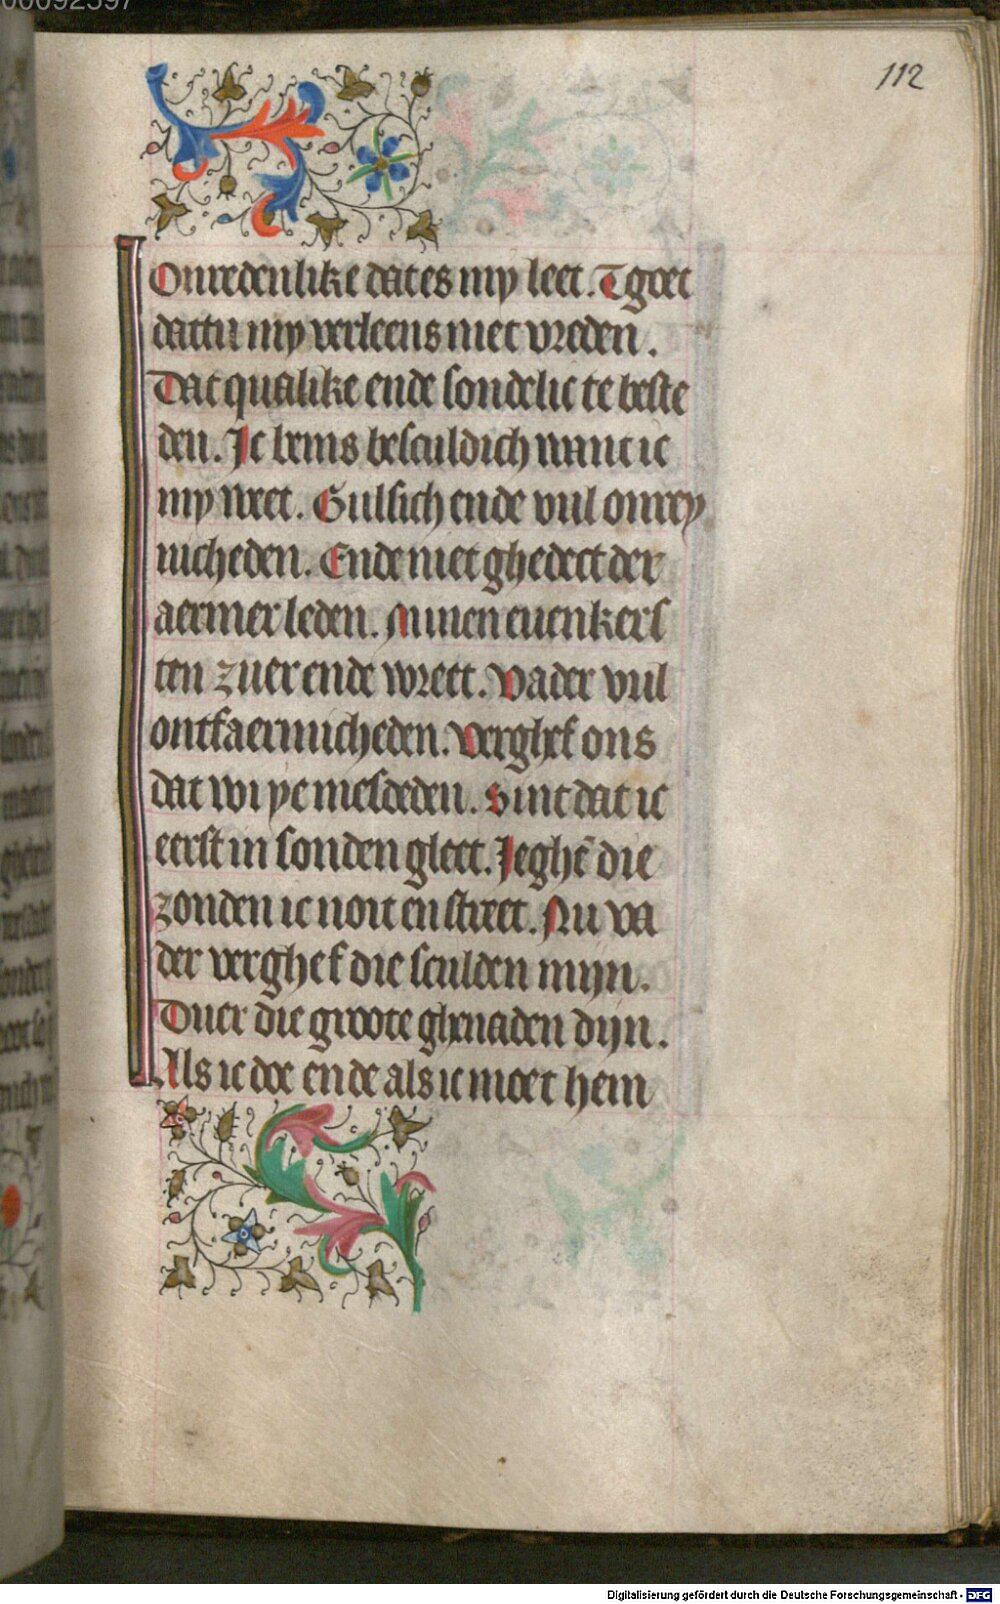 112
Onredenlike dat es my leet. Tgoet
dattu my verleens niet vreden.
Dat qualike ende sondelic te beste
den. Ic bems besculdich want ic
my weet. Gulsich ende vul onrey
nicheden. Ende niet ghedect der
aermer leden. Minen euenkers
ten zuer ende wreet. Vader vul
ontfaermicheden. Verghef ons
dat wi ye mesdeden. Sint dat ic
eerst in sonden gleet. Jeghē die
zonden ic noit en street. Nu va
der verghef die sculden mijn.
Duer die groote ghenaden dijn.
Als ic doe ende als ic moet hem
Digitalisierung gefördert durch die Deutsche Forschungsgemeinschaft - DFG